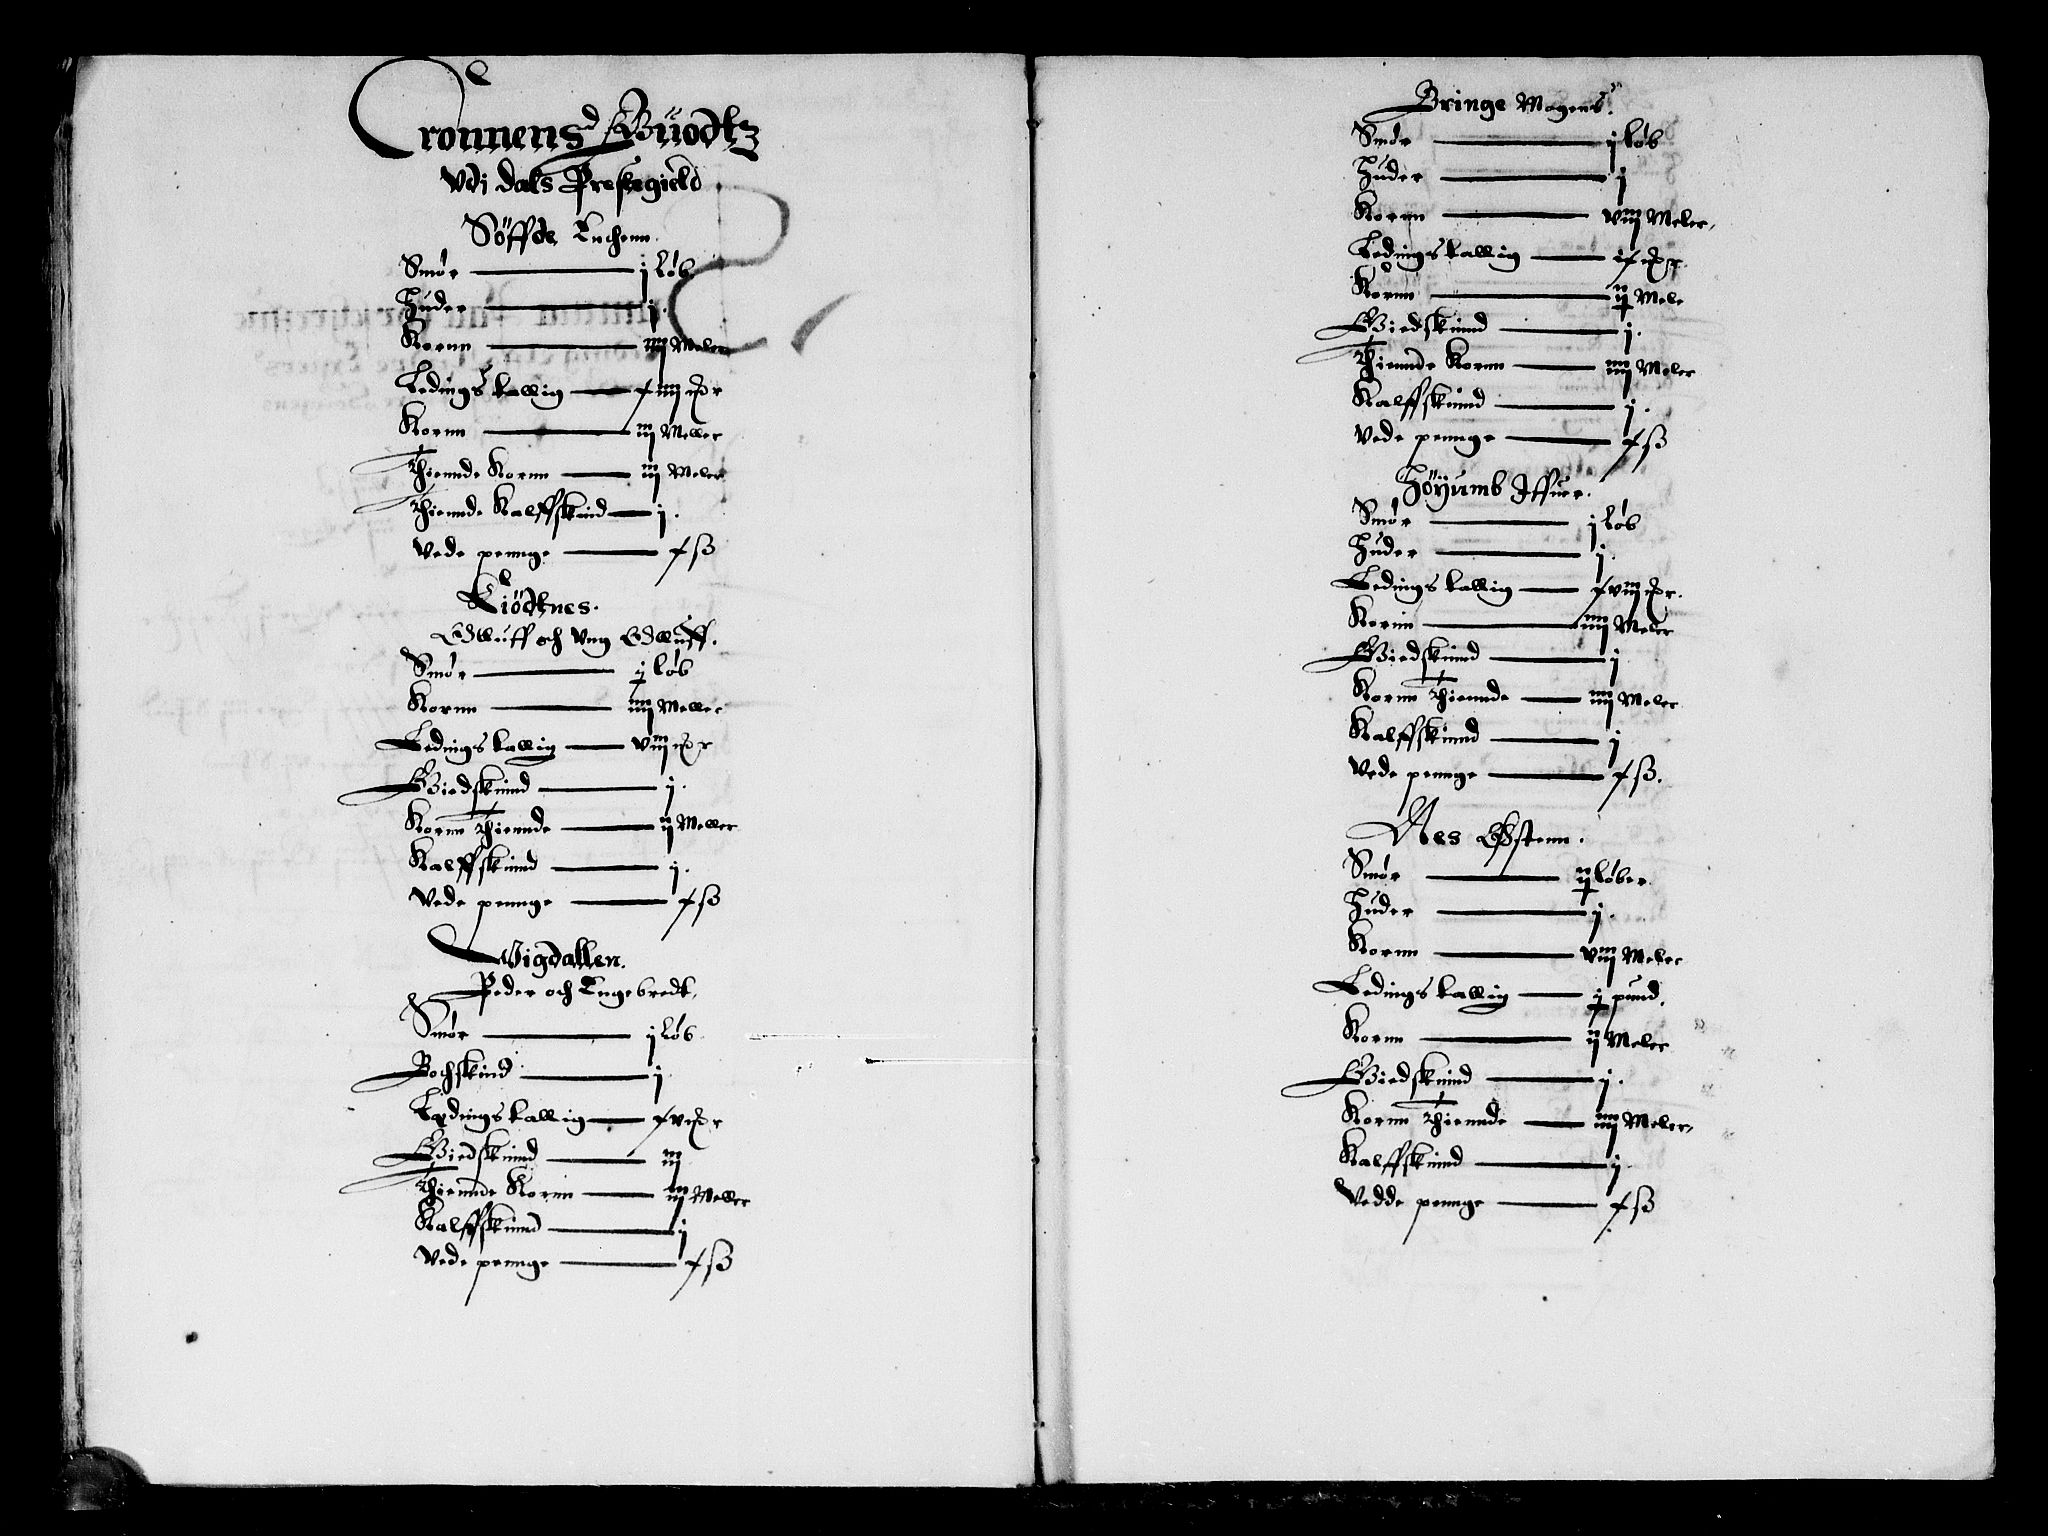 Cronnens Guodtz
Vdi Dals Prestegield
Söffde
Smør j løb
Huder j.
Kornn iiij Meler
Ledings kallig
Kornn iij Meller
Thiennde Kornn iij Meler
Thiennde Kalffskind j.
Vede pennge ß
Kiödtnes.
Smør løb
Kornn iiij Meller
Ledings kallig
Giedskinnd j.
Kornn Thiennde ij Meller
Kalffskinnd j.
Vede pennge ß
Vigdallen.
Peder och Engebredt.
Smør j løb
Bochskind j.
Ledings kallig
Giedskinnd iij
Thiennde Kornn iij Meller
Kalffskinnd j
Vede pennge ß
Bringe Mogens.
Smør j løb
Huder j
Kornn viij Meler.
Ledings kallig
Kornn Mele
Giedskinnd j.
Thiennde Kornn iiij Meler
Kalffskinnd j.
Vede pennge ß
Höyumb Iffuer.
Smør j løb
Huder j.
Ledings kallig
Kornn iiij Meler
Giedskinnd j
Kornn Thiennde iiij Meler
Kalffskinnd j
Vede pennge ß.
Aes Østenn.
Smør løber
Huder j.
Kornn viij Meler
Ledings kallig pund.
Kornn ij Meler
Giedskinnd j.
Kornn Thiennde iiij Meler.
Kalffskinnd j
Vedde pennge ß